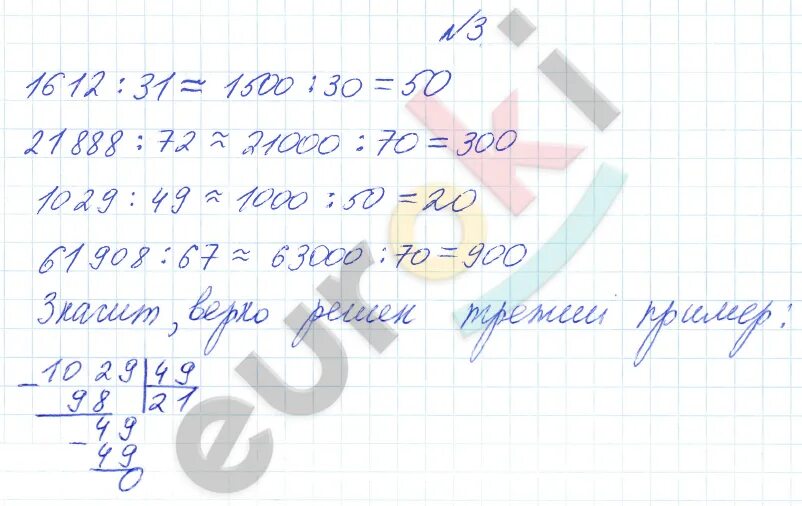 №3.
1612 : 31 ≈ 1500 : 30 = 50
21888 : 72 ≈ 21000 : 70 = 300
1029 : 49 ≈ 1000 : 50 = 20
61908 : 67 ≈ 63000 : 70 = 900
Значит, верно решен третий пример:
- 1029 | 49
98 | 21
- 49
49
0
euroki